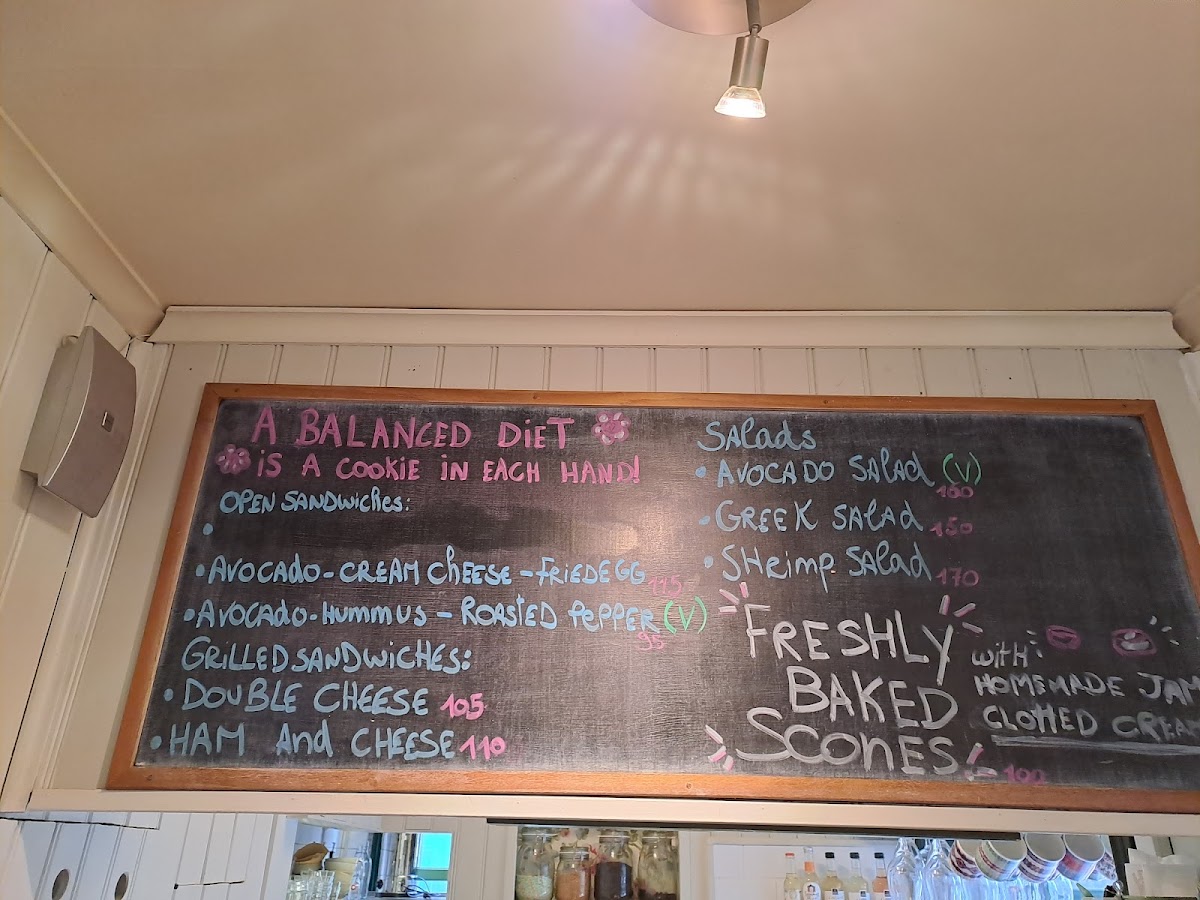 A BALANCED DiET
iS A COOKIE IN EACH HAND!
OPEN SANDWiches:
•
• AVOCADO - CREAM CheESE - FRiED EGG 115
• AVOCADO - HUMMUS - ROASTED PePPER (V)
95
GRiLLED SANDWiCHES:
• DOUBLE CHEESE 105
• HAM And CHEESE 110
SALads
• AVOCADO SALAd (V)
160
• GREEK SALAd 150
• SHrimp SALAd 170
FRESHLY
BAKED
SCONES
WitH:
HOMEMADE JAM
CLOTTED CREA
100